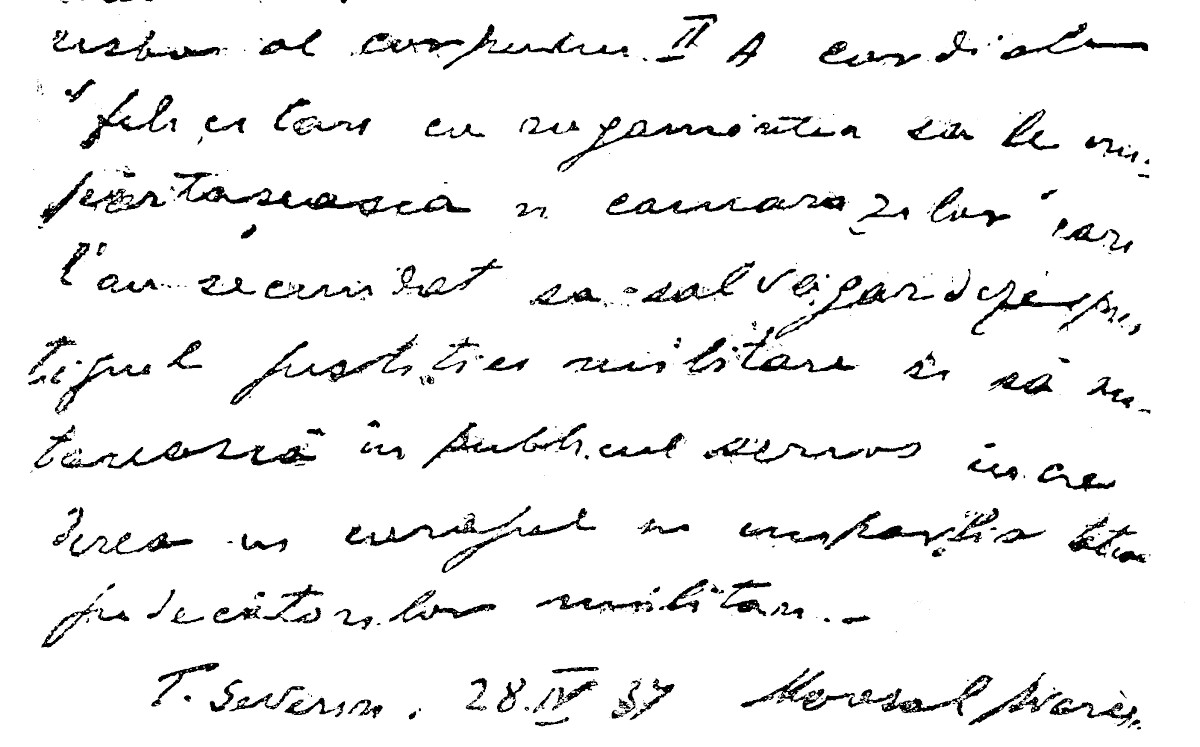 resboi al corpului II A cordiale
felicitari cu rugamintea sa le im-
părtașească și camarazilor cari
l'au secundat sa salvgardeze pres
tigiul justiției militare si să in-
tareasca în publicul serios incre
derea in curajul si imparțialitatea
judecătorilor militari.-
T. Severin. 28.IV 37 Maresal Averescu